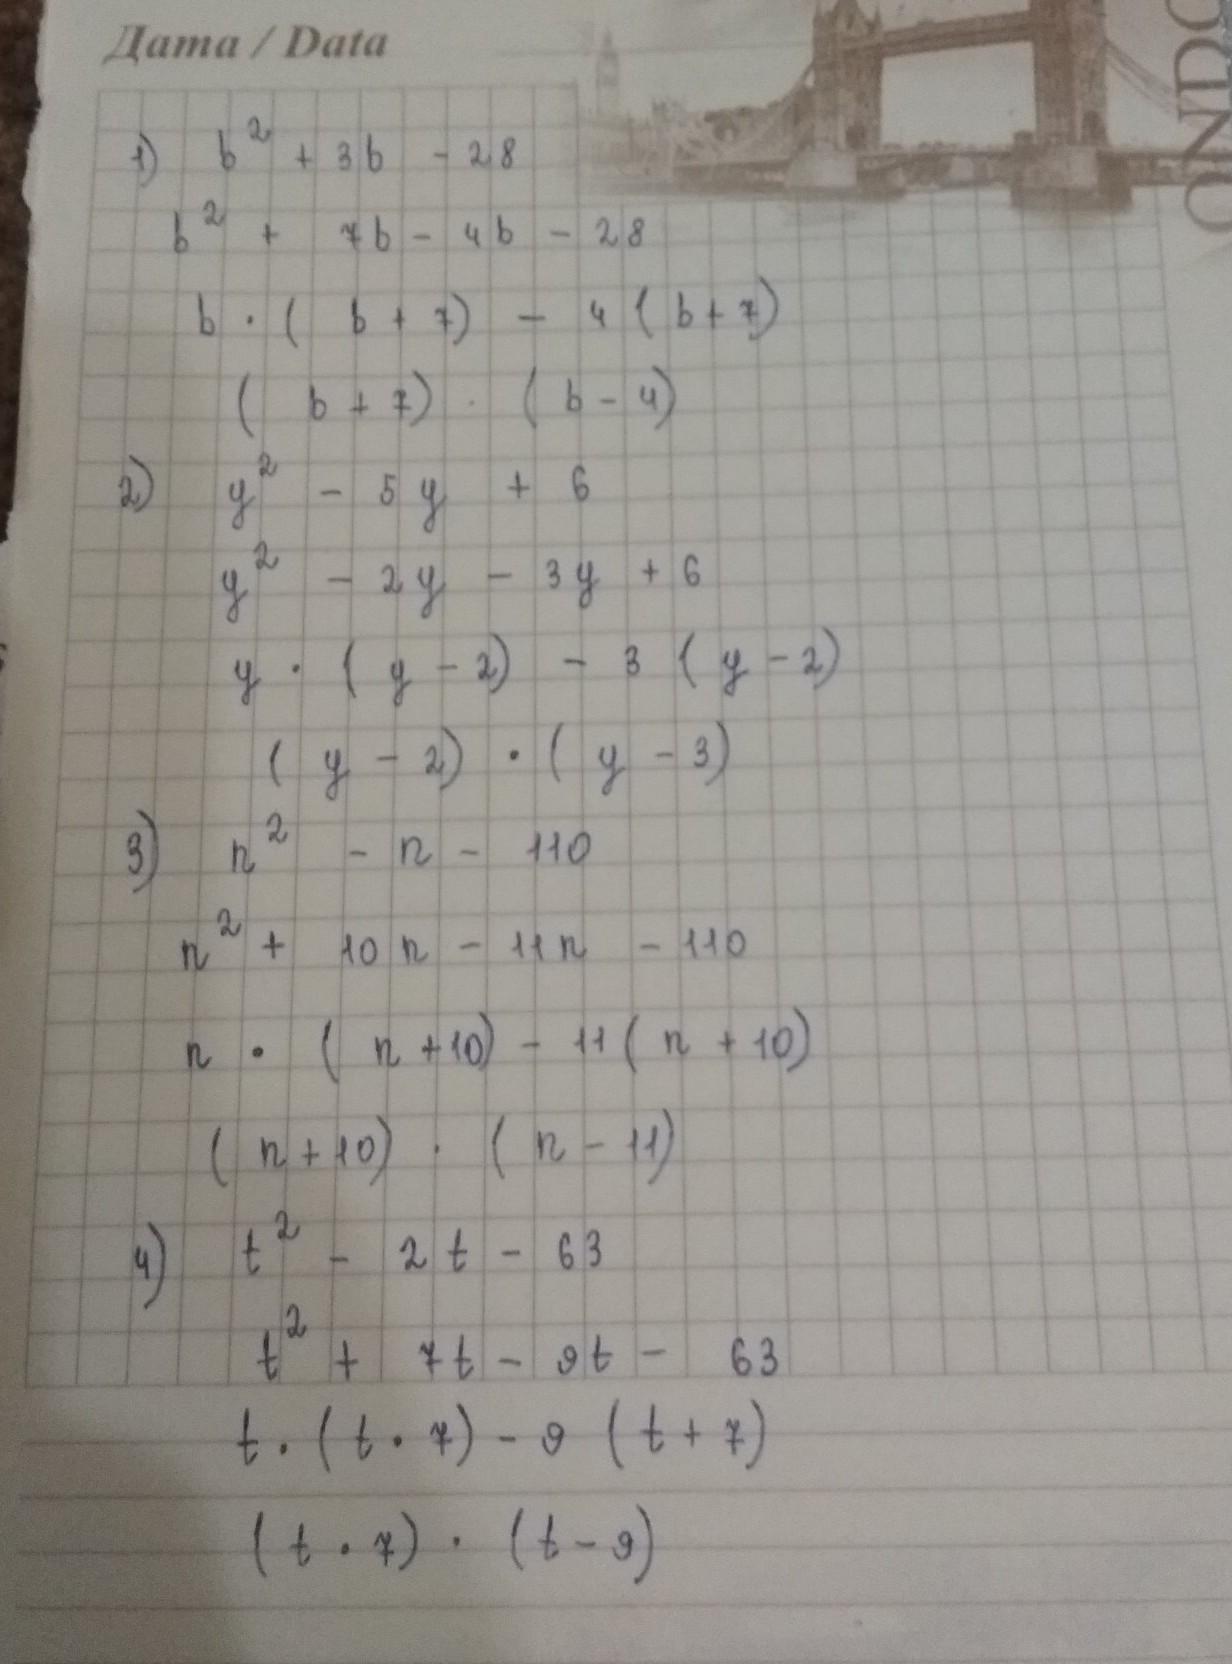 Дата / Data
ONDO
1) b² + 3b - 28
b² + 7b - 4b - 28
b · ( b + 7) - 4 ( b + 7)
( b + 7) · ( b - 4)
2) y² - 5y + 6
y² - 2y - 3y + 6
y · ( y - 2) - 3 ( y - 2)
( y - 2) · ( y - 3)
3) n² - n - 110
n² + 10n - 11n - 110
n · ( n + 10) - 11 ( n + 10)
( n + 10) · ( n - 11)
4) t² - 2t - 63
t² + 7t - 9t - 63
t · ( t · 7) - 9 ( t + 7)
( t · 7) · ( t - 9)